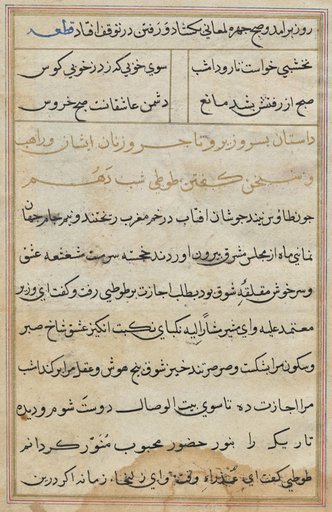 روز برامد و صبح چهره لمعانی بکشاد و رفتن در توقف افتاد قطعه
نخشبی خواست تا رود امشب سوی خوبی که زد ز خوبی کوس
صبح از رفتنش بشد مانع دشمن عاشقانست صبح خروس
داستان پسر وزیر و تاجر و زنان ایشان و راهب
و سخن کفتن طوطی شب دهم
چون افتاب در خم مغرب ریختند و نیم جام جهان
نمای ماه از مجلس مشرق بیرون اوردند خجسته سرمست شعشعه عشق
و سرخوش مقلقه شوق بود بطلب اجازت بر طوطی رفت و کفت ای وزیر
معتمد علیه و ای مشیر مشار الیه نکبای نکبت انکیز عشق شاخ صبر
و سکون مرا بشکست و صرصر تند خیز شوق بیخ هوش و عقل مرا برکند امشب
مرا اجازت ده تا سوی بیت الوصال دوست شوم و دیده
تاریک را بنور حضور محبوب منور کردانم
طوطی کفت ای عذراء وقت و ای زلیخاء زمانه اکر درین